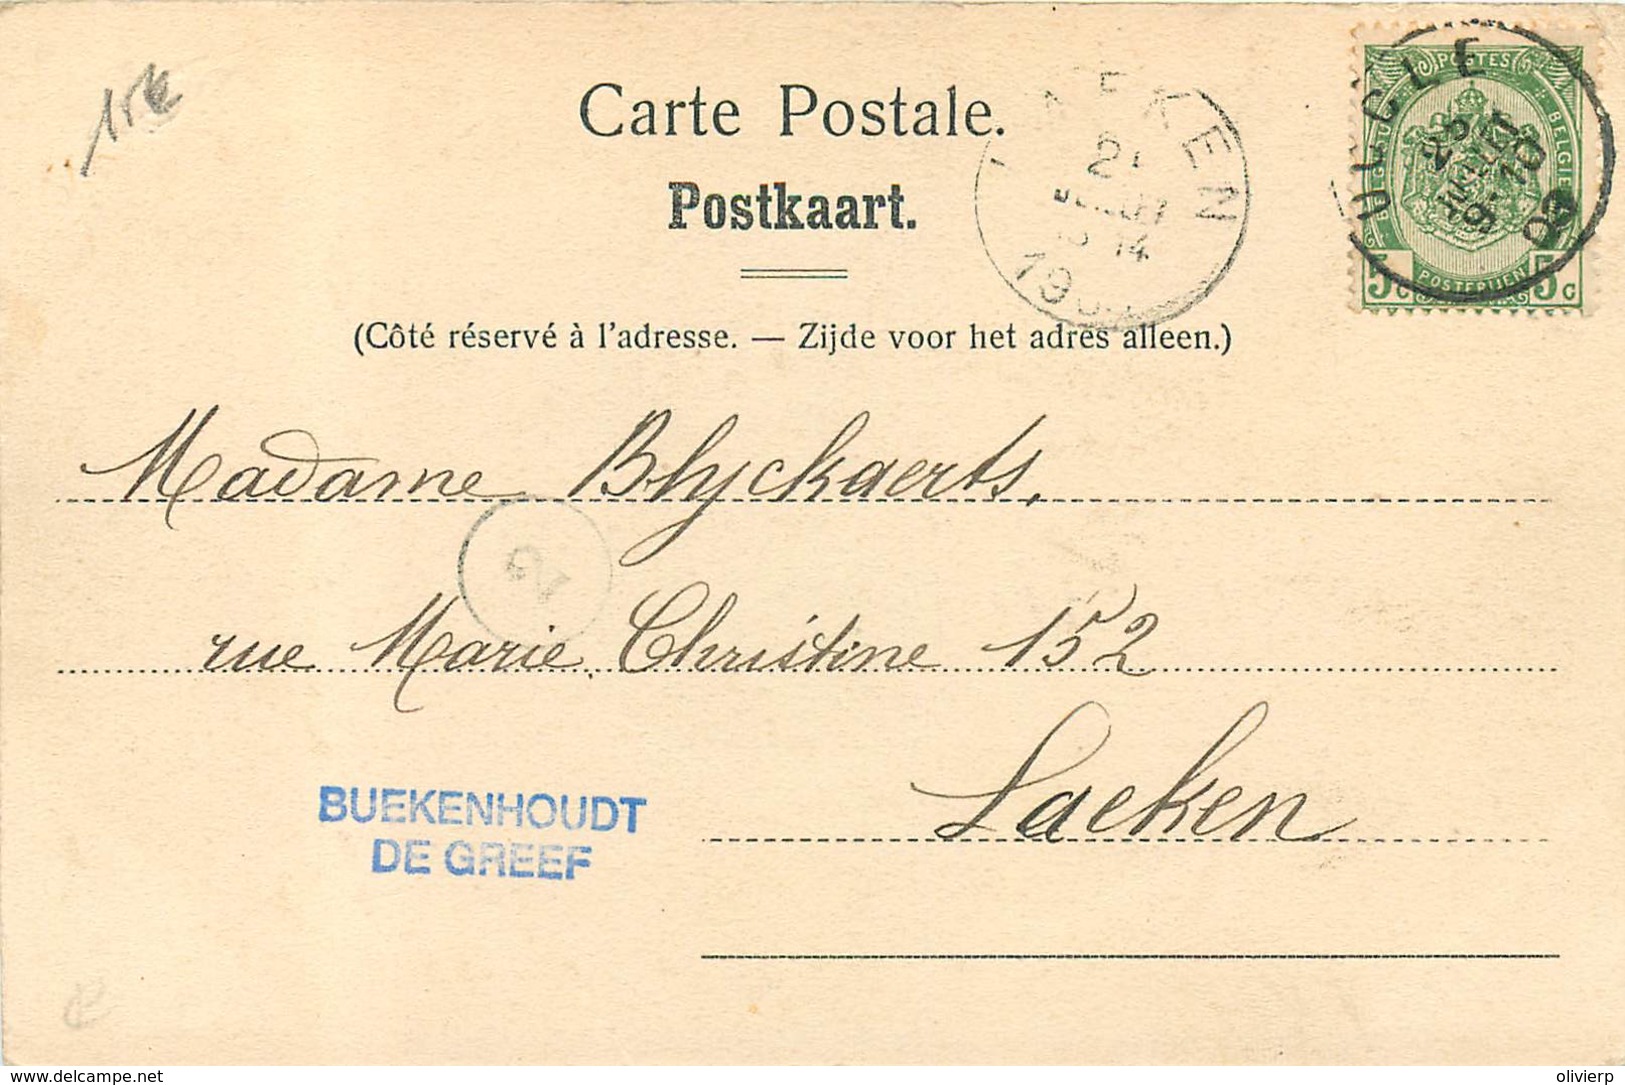 15€
Carte Postale.
Postkaart.
(Côté réservé à l'adresse. — Zijde voor het adres alleen.)
LAEKEN
14
UCCLE
9-10
POSTES
BELGIE
POSTERIJEN
5c 5c
Madame Blyckaerts,
rue Marie Christine 152
Laeken
BUEKENHOUDT
DE GREEF
www.delcampe.net
olivierp